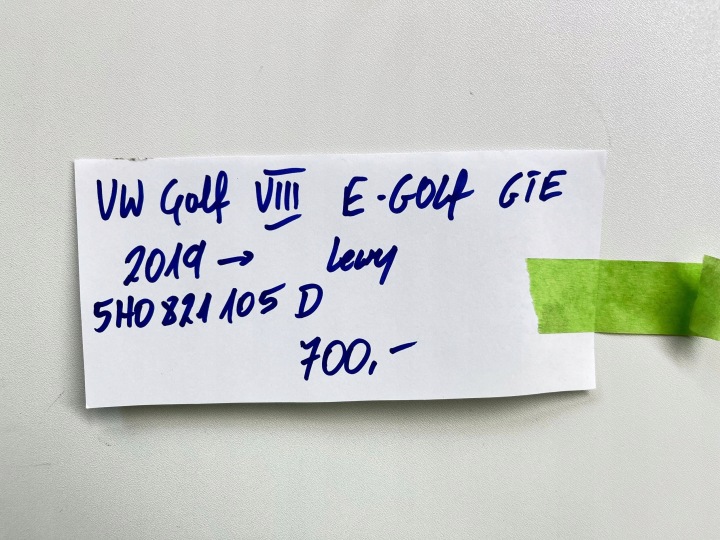 VW Golf VIII E-GOLF GTE
2019 → lewy
5H0821105 D
700,-